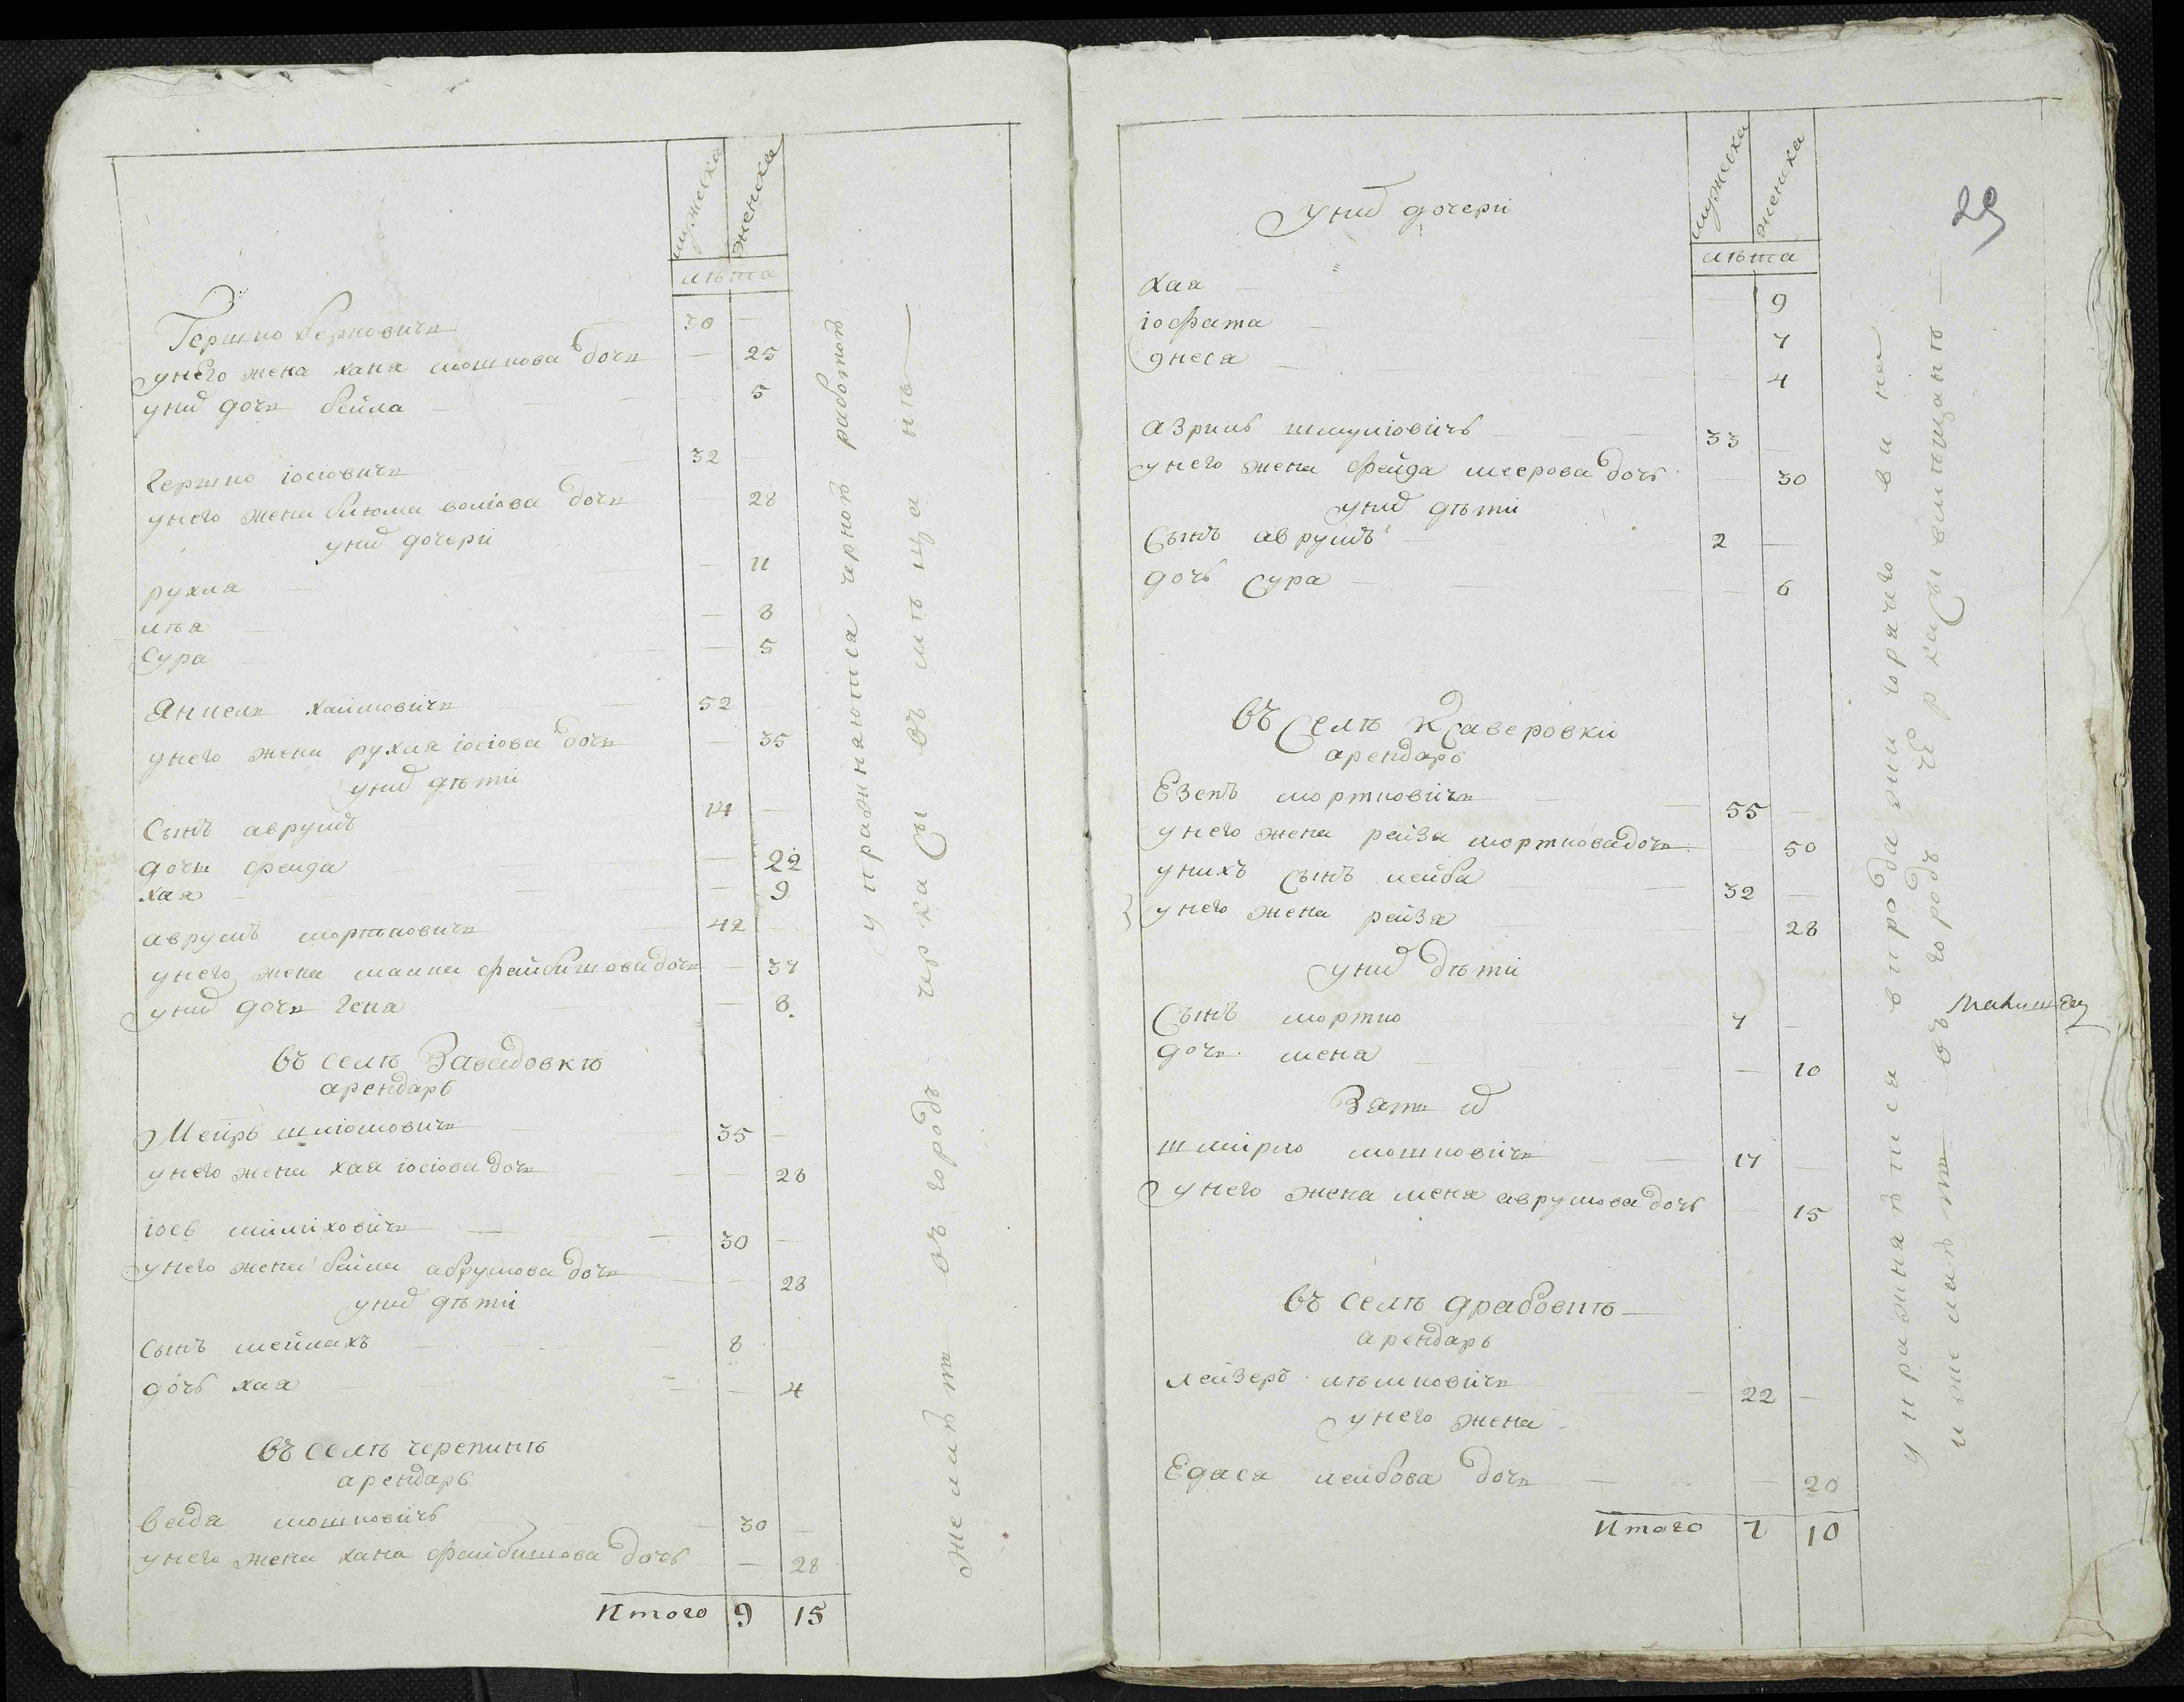 мужеска женска
лѣта
Гершко берковичъ 30 —
унего жена хана мошкова дочь — 25
уних дочь бейла 5
Гершко іосіовичъ 32 —
унего жена блюма волiова дочь — 28
уних дочери
рухля — 11
лѣа — 8
Сура — 5
Янкель хаимовичъ 52
унего жена рухля іосіова дочь — 35
уних дѣти
Сынъ аврумъ 14 —
дочь фейда — 22
хая — 9
аврумъ мортковичъ 42
унего жена малка файбишова дочь — 37
уних дочь гена — 8
въ селѣ Завадовкѣ
арендарь
Меиръ шліомовичъ 35 —
унего жена хая іосіова дочь — 28
іось міліховичъ 30 —
унего жена бейла абрумова дочь — 28
уних дѣти
Сынъ мейлахъ 8
дочь хая — 4
въ селѣ черепинѣ
арендарь
Вада мошковичъ 30 —
унего жена хана файбишова дочь — 28
Итого 9 15
упражняются черной работой
желает въ городѣ черкасы въ мѣщане
29
мужеска женска
лѣта
уних дочери
хая 9
іосфата 7
Днеся 4
азриль шмуліовичъ 33 —
унего жена фейда меерова дочь — 30
уних дѣти
Сынъ аврумъ 2 —
дочь Сура — 6
въ Селѣ Ксаверовки
арендарь
Езепъ мортковичъ 55 —
унего жена рейза мортковадочь 50
унихъ Сынъ лейба 32 —
унего жена рейзя 28
уних дѣти
Сынъ мортко 7 —
дочь мена — 10
Зять их
шмірло мошковичъ 17
унего жена мена аврумова дочь 15
въ селѣ драбовкѣ
арендарь
Лейзеръ ицковичъ 22 —
унего жена
Едася лейбова дочь — 20
Итого 7 10
упражняется в продажи горячего вина
и желает въ городъ Черкасы вмѣщанѣ